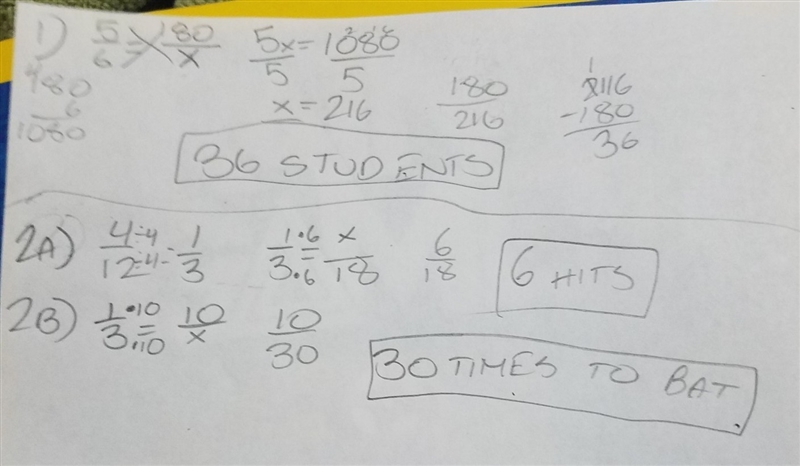 1) 5/6 = 180/x 5x/5 = 1080/5 180/216 216
180 x = 216 -180
6 36
1080
36 STUDENTS
2A) 4÷4/12÷4 = 1/3 1·6/3·6 = x/18 6/18 6 HITS
2B) 1·10/3·10 = 10/x 10/30
30 TIMES TO BAT.